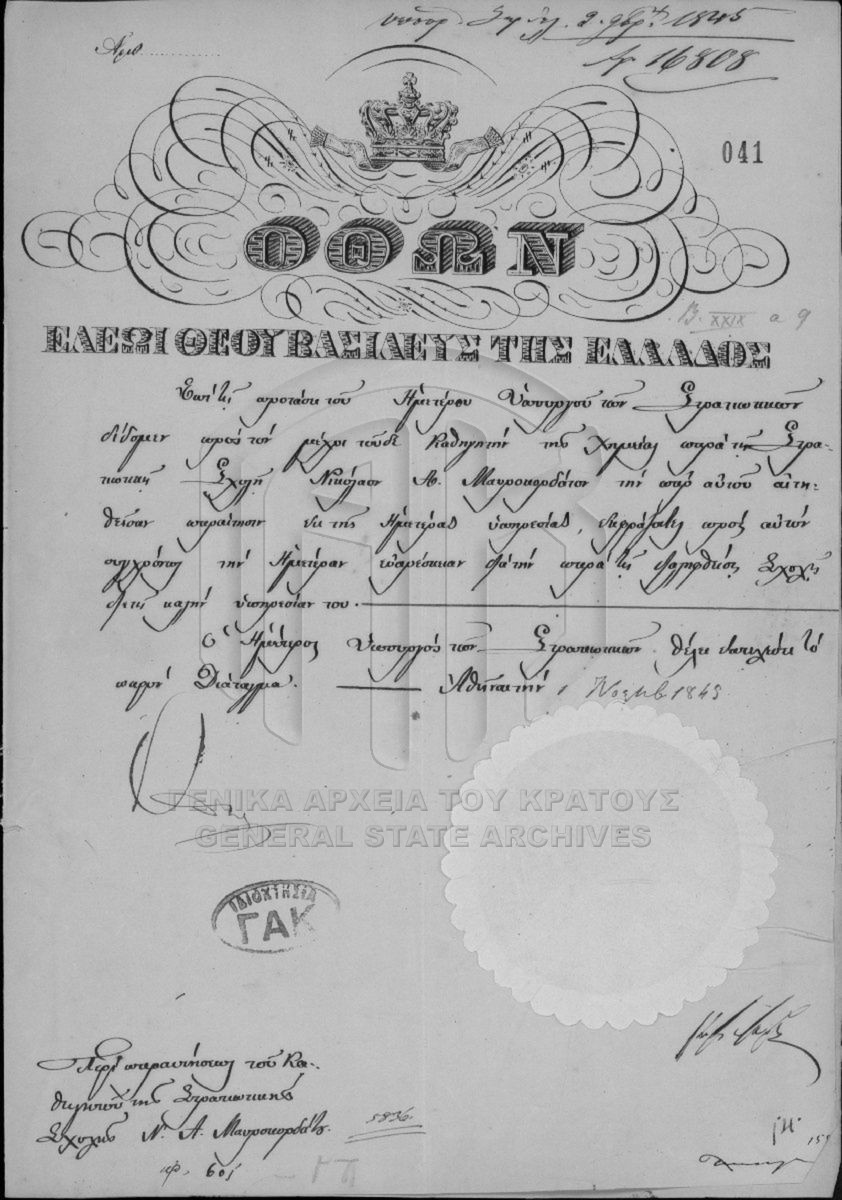 Αριθ.
2 9βρ. 1845
16808
041
ΟΘΩΝ
B. XXIX a 9
ΕΛΕΩΙ ΘΕΟΥ ΒΑΣΙΛΕΥΣ ΤΗΣ ΕΛΛΑΔΟΣ
Επί τη προτάσει του Ημετέρου Υπουργού των Στρατιωτικών
δίδομεν προς τον μέχρι τούδε Καθηγητήν της Χημείας παρά τη Στρα-
τιωτική Σχολή Νικόλαον Α. Μαυροκορδάτον την παρ' αυτού αιτη-
θείσαν παραίτησιν εκ της Ημετέρας υπηρεσίας, προς αυτόν
συγχρόνως την Ημετέραν ευαρέσκειαν δια την παρά τη Σχολή
καλήν υπηρεσίαν του.
Ο Ημέτερος Υπουργός των Στρατιωτικών θέλει εκτελέσει το
παρόν Διάταγμα. Αθήναι την 1 Νοεμβ 1845
ΓΕΝΙΚΑ ΑΡΧΕΙΑ ΤΟΥ ΚΡΑΤΟΥΣ
GENERAL STATE ARCHIVES
ΙΔΙΟΚΤΗΣΙΑ
ΓΑΚ
Περί παραιτήσεως του Κα-
θηγητού της Στρατιωτικής
Σχολής Ν. Α. Μαυροκορδάτου.
5836